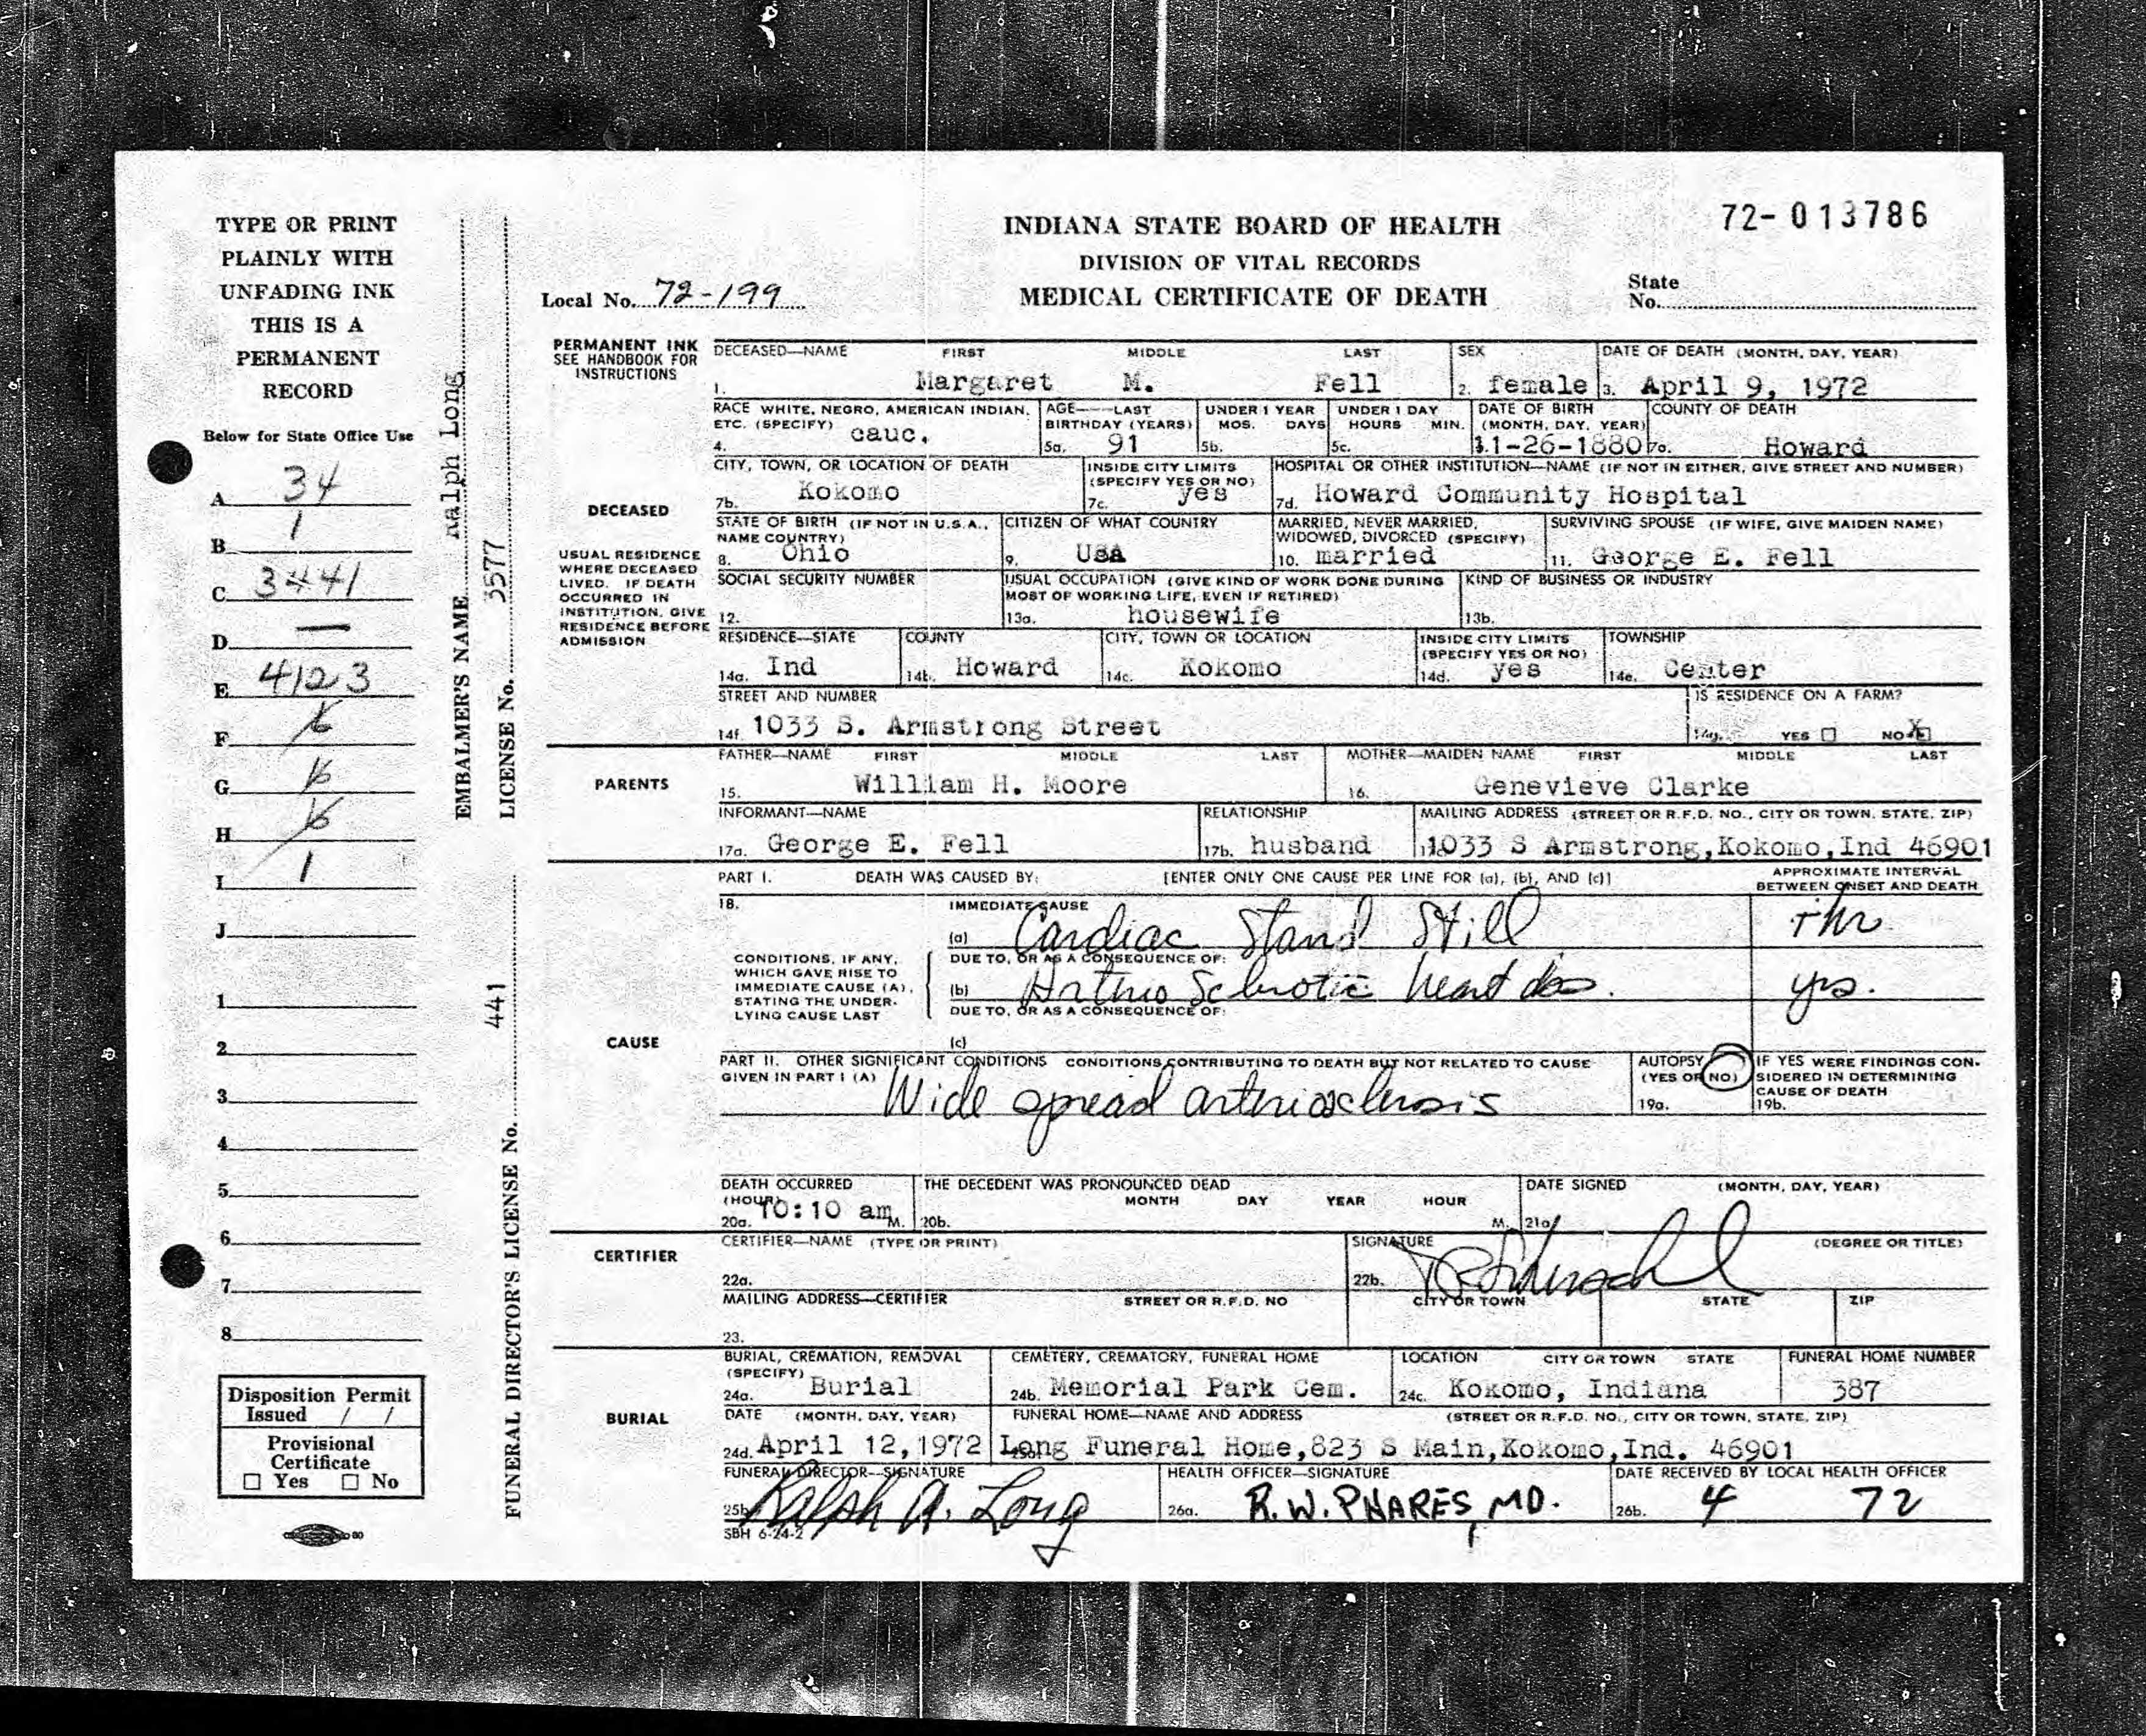 72-013786
TYPE OR PRINT
PLAINLY WITH
UNFADING INK
THIS IS A
PERMANENT
RECORD
Below for State Office Use
A 34
B 1
C 3441
D —
E 4123
F
G
H
I 1
J
1
2
3
4
5
6
7
8
Disposition Permit
Issued / /
Provisional
Certificate
☐ Yes ☐ No
EMBALMER'S NAME Ralph Long
LICENSE No. 3577
FUNERAL DIRECTOR'S LICENSE No. 441
INDIANA STATE BOARD OF HEALTH
DIVISION OF VITAL RECORDS
MEDICAL CERTIFICATE OF DEATH
Local No. 72-199
State
No.
PERMANENT INK
SEE HANDBOOK FOR
INSTRUCTIONS
DECEASED—NAME FIRST MIDDLE LAST SEX DATE OF DEATH (MONTH, DAY, YEAR)
1. Margaret M. Fell 2. female 3. April 9, 1972
RACE WHITE, NEGRO, AMERICAN INDIAN, AGE—LAST UNDER 1 YEAR UNDER 1 DAY DATE OF BIRTH COUNTY OF DEATH
ETC. (SPECIFY) BIRTHDAY (YEARS) MOS. DAYS HOURS MIN. (MONTH, DAY, YEAR)
4. cauc. 5a. 91 5b. 5c. 11-26-1880 7a. Howard
CITY, TOWN, OR LOCATION OF DEATH INSIDE CITY LIMITS HOSPITAL OR OTHER INSTITUTION—NAME (IF NOT IN EITHER, GIVE STREET AND NUMBER)
(SPECIFY YES OR NO)
7b. Kokomo 7c. yes 7d. Howard Community Hospital
DECEASED
USUAL RESIDENCE
WHERE DECEASED
LIVED. IF DEATH
OCCURRED IN
INSTITUTION, GIVE
RESIDENCE BEFORE
ADMISSION
STATE OF BIRTH (IF NOT IN U.S.A., CITIZEN OF WHAT COUNTRY MARRIED, NEVER MARRIED, SURVIVING SPOUSE (IF WIFE, GIVE MAIDEN NAME)
NAME COUNTRY) WIDOWED, DIVORCED (SPECIFY)
8. Ohio 9. USA 10. married 11. George E. Fell
SOCIAL SECURITY NUMBER USUAL OCCUPATION (GIVE KIND OF WORK DONE DURING KIND OF BUSINESS OR INDUSTRY
MOST OF WORKING LIFE, EVEN IF RETIRED)
12. 13a. housewife 13b.
RESIDENCE—STATE COUNTY CITY, TOWN OR LOCATION INSIDE CITY LIMITS TOWNSHIP
(SPECIFY YES OR NO)
14a. Ind 14b. Howard 14c. Kokomo 14d. yes 14e. Center
STREET AND NUMBER IS RESIDENCE ON A FARM?
14f. 1033 S. Armstrong Street YES ☐ NO X
PARENTS
FATHER—NAME FIRST MIDDLE LAST MOTHER—MAIDEN NAME FIRST MIDDLE LAST
15. William H. Moore 16. Genevieve Clarke
INFORMANT—NAME RELATIONSHIP MAILING ADDRESS (STREET OR R.F.D. NO., CITY OR TOWN, STATE, ZIP)
17a. George E. Fell 17b. husband 1033 S Armstrong,Kokomo,Ind 46901
PART I. DEATH WAS CAUSED BY: [ENTER ONLY ONE CAUSE PER LINE FOR (a), (b), AND (c)] APPROXIMATE INTERVAL
BETWEEN ONSET AND DEATH
CAUSE
18. IMMEDIATE CAUSE
(a) Cardiac Stand Still
CONDITIONS, IF ANY,
WHICH GAVE RISE TO
IMMEDIATE CAUSE (A),
STATING THE UNDER-
LYING CAUSE LAST
DUE TO, OR AS A CONSEQUENCE OF:
(b) heart yrs.
DUE TO, OR AS A CONSEQUENCE OF:
(c)
PART II. OTHER SIGNIFICANT CONDITIONS CONDITIONS CONTRIBUTING TO DEATH BUT NOT RELATED TO CAUSE
GIVEN IN PART I (A)
Wide spread arteriosclerosis
AUTOPSY
(YES OR NO)
19a.
IF YES WERE FINDINGS CON-
SIDERED IN DETERMINING
CAUSE OF DEATH
19b.
DEATH OCCURRED THE DECEDENT WAS PRONOUNCED DEAD DATE SIGNED (MONTH, DAY, YEAR)
(HOUR) MONTH DAY YEAR HOUR
20a. 10:10 am M. 20b. M. 21a
CERTIFIER
CERTIFIER—NAME (TYPE OR PRINT) SIGNATURE (DEGREE OR TITLE)
22a. 22b.
MAILING ADDRESS—CERTIFIER STREET OR R.F.D. NO CITY OR TOWN STATE ZIP
23.
BURIAL
BURIAL, CREMATION, REMOVAL CEMETERY, CREMATORY, FUNERAL HOME LOCATION CITY OR TOWN STATE FUNERAL HOME NUMBER
(SPECIFY)
24a. Burial 24b. Memorial Park Cem. 24c. Kokomo, Indiana 387
DATE (MONTH, DAY, YEAR) FUNERAL HOME—NAME AND ADDRESS (STREET OR R.F.D. NO., CITY OR TOWN, STATE, ZIP)
24d. April 12,1972 Long Funeral Home,823 S Main,Kokomo,Ind. 46901
FUNERAL DIRECTOR—SIGNATURE HEALTH OFFICER—SIGNATURE DATE RECEIVED BY LOCAL HEALTH OFFICER
25b Ralph A. Long 26a. R.W. PHARES, MD. 26b. 4 72
SBH 6-24-2